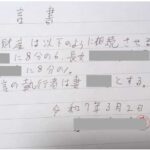 言書
財産は以下のように相続させる
に8分の6、長女
に8分の1
言の執行者は妻 とする。
令和7年3月2日